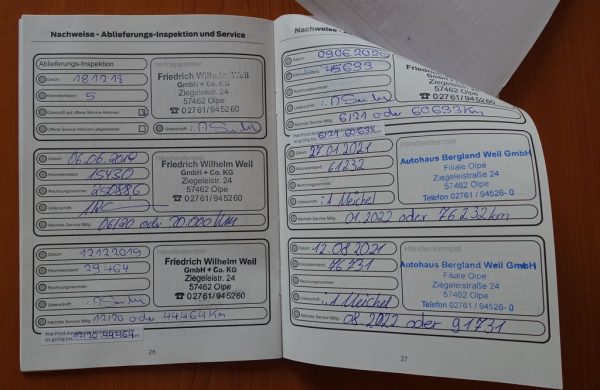 Nachweise - Ablieferungs-Inspektion und Service
Ablieferungs-Inspektion
Datum: 18.12.18
Kilometerstand: 5
Überprüft auf offene Service Aktionen:
Offene Service Aktionen abgearbeitet:
Unterschrift:
Vertragspartner
Friedrich Wilhelm Weil
GmbH + Co. KG
Ziegeleistr. 24
57462 Olpe
☎ 02761/945260
Datum: 06.06.2019
Kilometerstand: 15430
Rechnungsnummer: 250886
Unterschrift:
Nächste Service fällig: 06/20 oder 30.000 km
Händlerstempel
Friedrich Wilhelm Weil
GmbH + Co. KG
Ziegeleistr. 24
57462 Olpe
☎ 02761/945260
Datum: 12.12.2019
Kilometerstand: 29464
Rechnungsnummer:
Unterschrift:
Nächste Service fällig: 12/20 oder 44464 km
Händlerstempel
Friedrich Wilhelm Weil
GmbH + Co. KG
Ziegeleistr. 24
57462 Olpe
☎ 02761/945260
Ihre Ford
ist gültig bis: 12/20 44464 km
26
Nachweise - Ablieferungs-Inspektion und Service
Datum: 09.06.2020
Kilometerstand: 45633
Rechnungsnummer:
Unterschrift:
Nächste Service fällig: 6/21 oder 60633 km
Friedrich Wilhelm Weil
GmbH + Co. KG
Ziegeleistr. 24
57462 Olpe
☎ 02761/945260
Ihre Ford
ist gültig bis: 6/21 60633
Datum: 27.01.2021
Kilometerstand: 61232
Rechnungsnummer:
Unterschrift: A Meichel
Nächste Service fällig: 01.2022 oder 76232 km
Händlerstempel
Autohaus Bergland Weil GmbH
Filiale Olpe
Ziegeleistraße 24
57462 Olpe
Telefon 02761 / 94526- 0
Datum: 12.08.2021
Kilometerstand: 76731
Rechnungsnummer:
Unterschrift: A Meichel
Nächste Service fällig: 08.2022 oder 91731
Händlerstempel
Autohaus Bergland Weil GmbH
Filiale Olpe
Ziegeleistraße 24
57462 Olpe
Telefon 02761 / 94526- 0
27